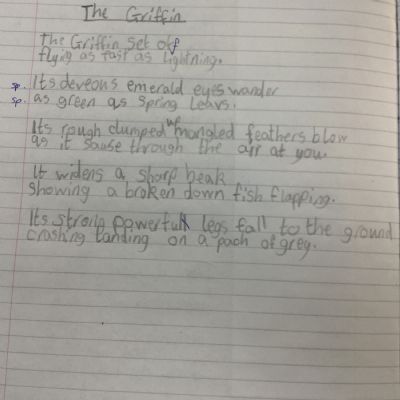 The Griffin
The Griffin set off
flying as fast as lightning.
sp. Its deveous emerald eyes wander
sp. as green as spring leavs.
Its rough clumped mangled feathers blow
as it sause through the air at you.
It widens a sharp beak
showing a broken down fish flapping.
Its strong powerful legs fall to the ground
crashing landing on a pach of grey.